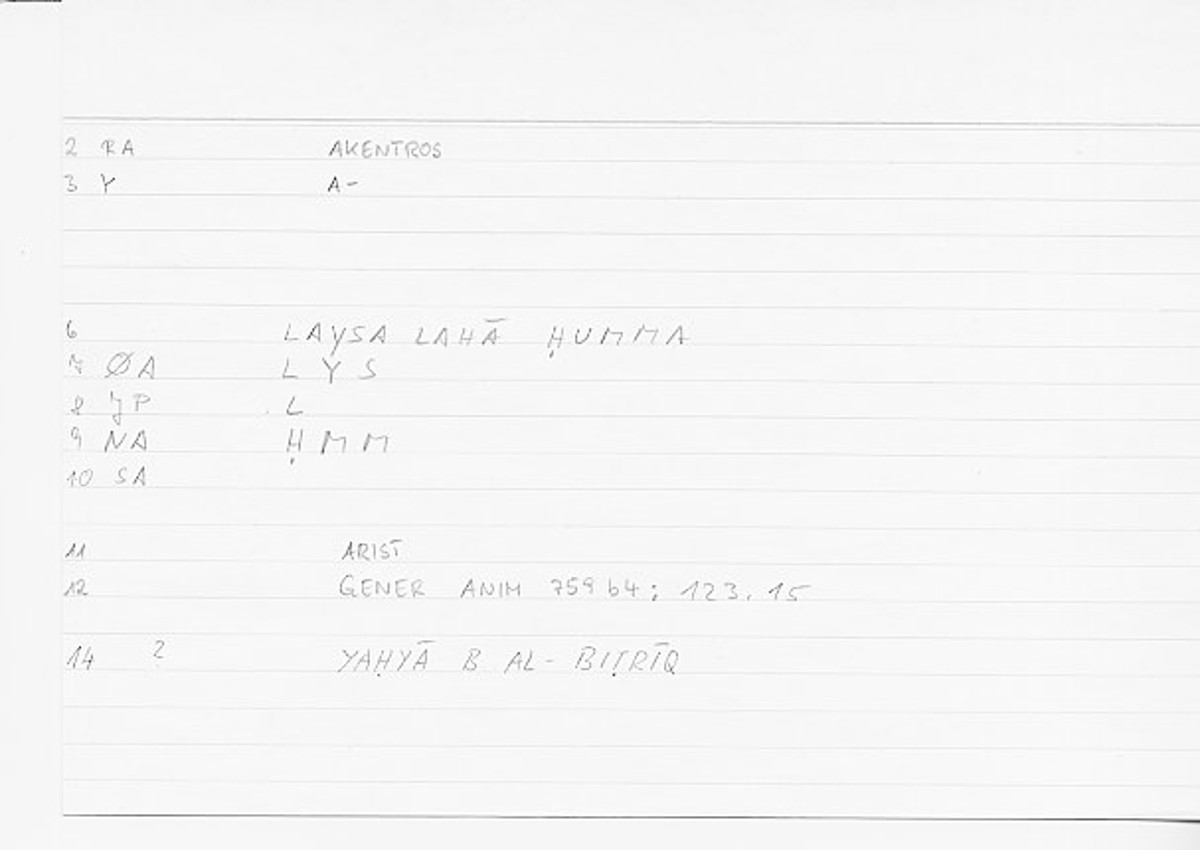 2 RA AKENTROS
3 Y A-
6 LAYSA LAHĀ ḤUMMA
7 ØA L Y S
8 JP L
9 NA Ḥ M M
10 SA
11 ARIST
12 GENER ANIM 759 b4; 123.15
14 2 YAḤYĀ B AL-BIṬRĪQ